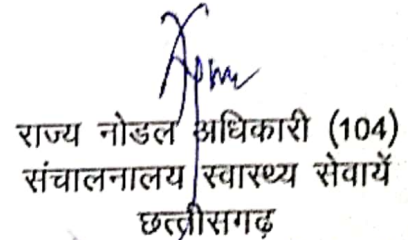 राज्य नोडल अधिकारी (104)
संचालनालय स्वास्थ्य सेवायें
छत्तीसगढ़